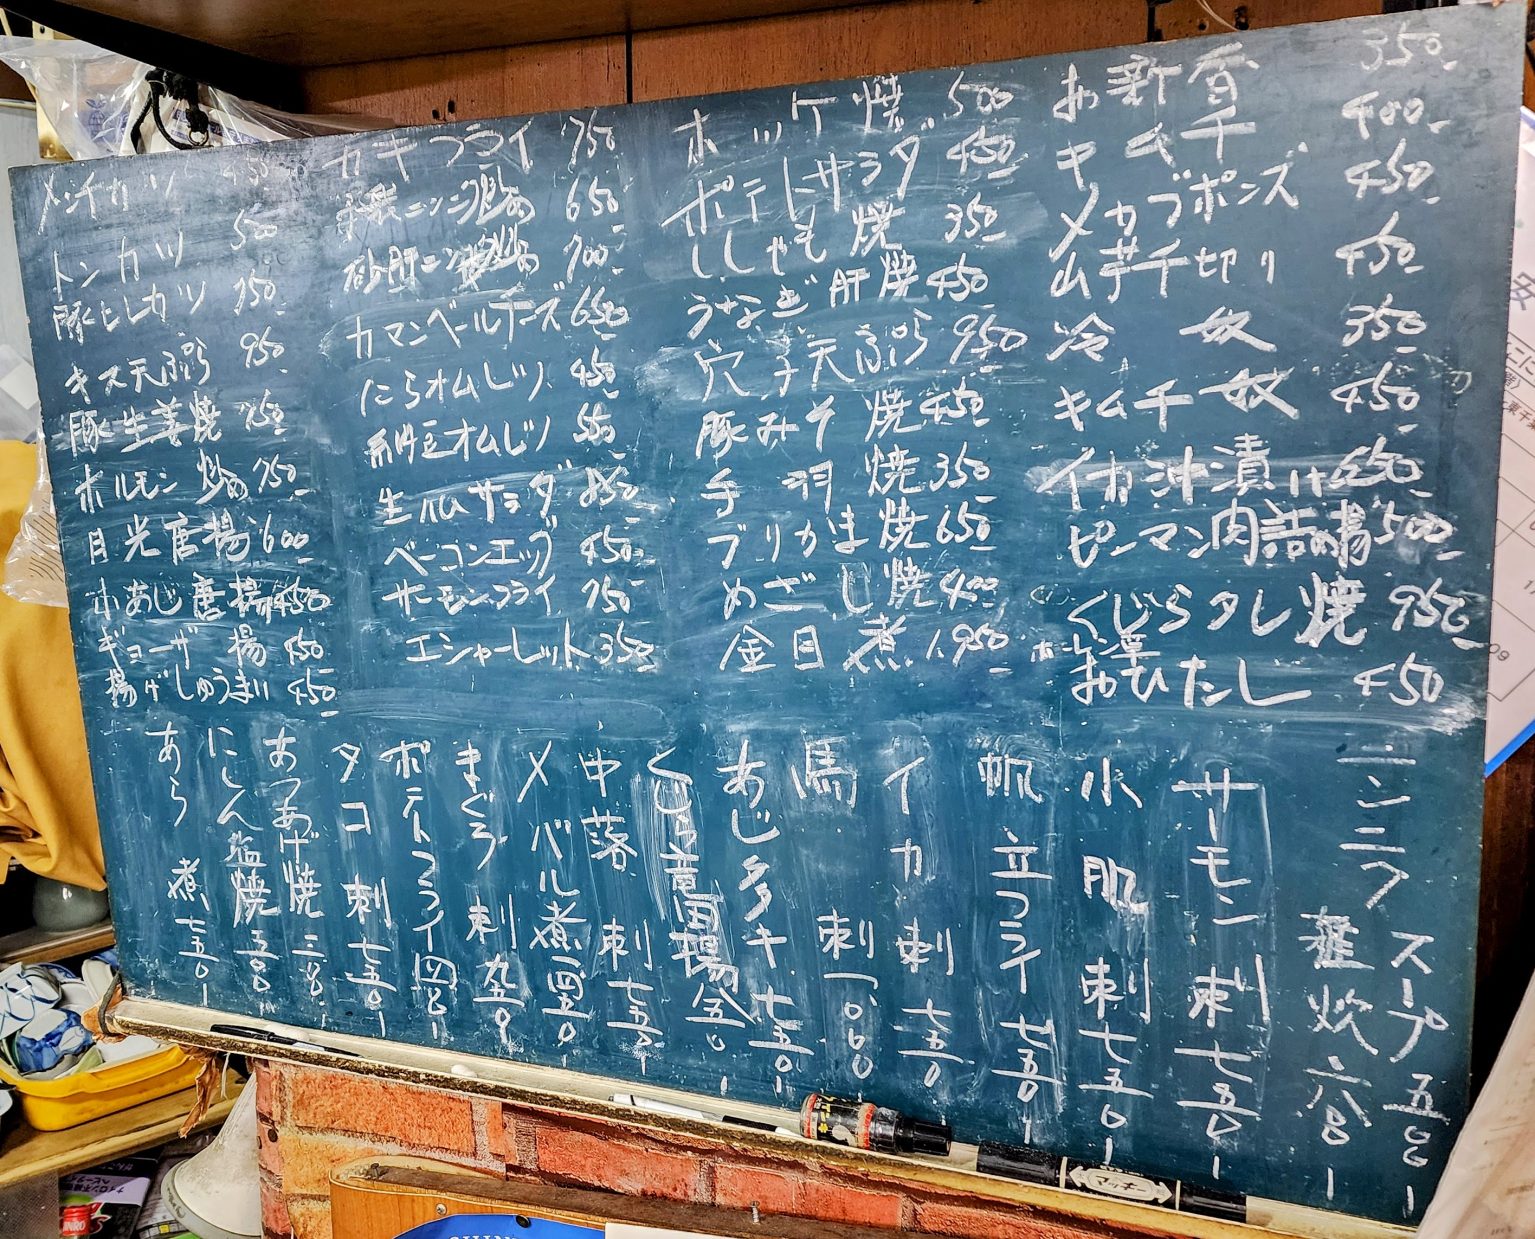 メンチカツ 450
トンカツ 500
豚ヒレカツ 750.
キス天ぷら 950
豚生姜焼 750
ホルモン炒め 750
目光唐揚 600
小あじ唐揚 450
ギョーザ揚 450
揚げしゅうまい 450
カキフライ 750
ニンニク 650
砂肝ニンニク 700
カマンベールチーズ 650
にらオムレツ 450
納豆オムレツ 550
生ハムサラダ 850
ベーコンエッグ 450
サーモンフライ 750
エシャーレット 350
ホッケ焼 500
ポテトサラダ 450
ししゃも焼 350
うなぎ肝焼 450
穴子天ぷら 950
豚みそ焼 450
手羽焼 350
ブリかま焼 650
めざし焼 400
金目煮 1,950
お新香 350
キムチ 400
メカブポンズ 450
山芋千切り 450
冷奴 350
キムチ奴 450
イカ沖漬け 550
ピーマン肉詰め揚 500
くじらタレ焼 950
ホーレン草
おひたし 450
ニンニクスープ 五〇〇
雑炊 六〇〇
サーモン刺 七五〇
小肌刺 七五〇
帆立フライ 七五〇
イカ刺 七五〇
馬刺 一、〇〇〇
あじタタキ 七五〇
くじら竜田揚
中落刺 七五〇
メバル煮
まぐろ刺 九五〇
ポテトフライ 四五〇
タコ刺 七五〇
あつあげ焼 三五〇
にしん塩焼 五五〇
あら煮 七五〇
マッキー